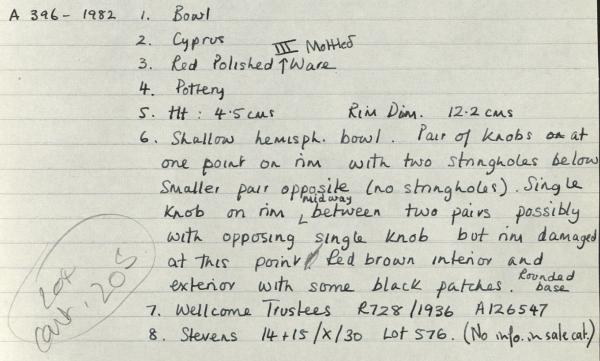 A 396-1982 1. Bowl
2. Cyprus
3. Red Polished ↑ III Mottled Ware
4. Pottery
5. Ht : 4.5 cms Rim Dim. 12.2 cms
6. Shallow hemisph. bowl. Pair of knobs at
one point on rim with two stringholes below
Smaller pair opposite (no stringholes). Single
knob on rim midway between two pairs possibly
with opposing single knob but rim damaged
at this point. Red brown interior and
exterior with some black patches. Rounded base
7. Wellcome Trustees R728/1936 A126547
8. Stevens 14+15/X/30 Lot 576. (No info. in sale cat.)
205